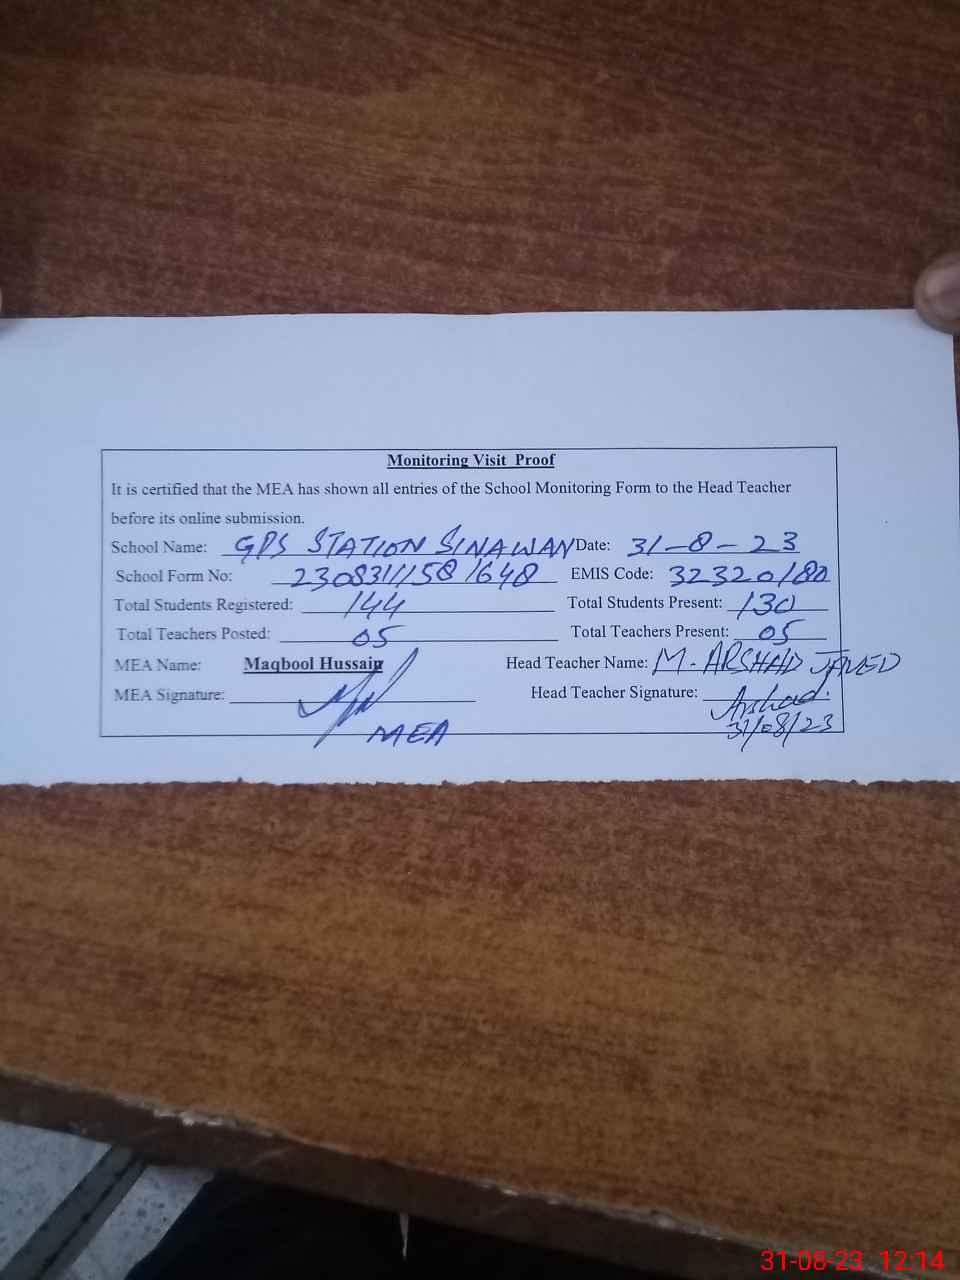 Monitoring Visit Proof
It is certified that the MEA has shown all entries of the School Monitoring Form to the Head Teacher
before its online submission.
School Name: GPS STATION SINAWAN Date: 31-8-23
School Form No: 23083111581648 EMIS Code: 32320180
Total Students Registered: 144 Total Students Present: 130
Total Teachers Posted: 05 Total Teachers Present: 05
MEA Name: Maqbool Hussain Head Teacher Name: M. ARSHAD JAVED
MEA Signature: Head Teacher Signature: Arshad
MEA 31/08/23
31-08-23 12:14